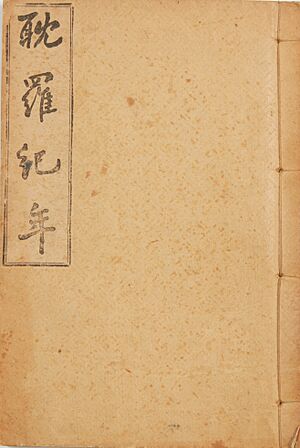 耽羅紀年